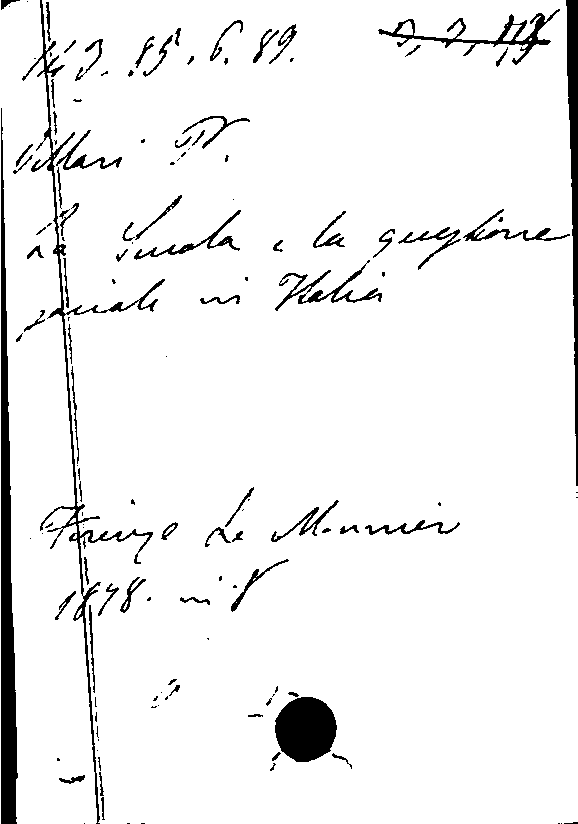 143. 15. 6. 89.
Villari P.
La Scuola e la questione
sociale in Italia
Firenze Le Monnier
1878. in 8